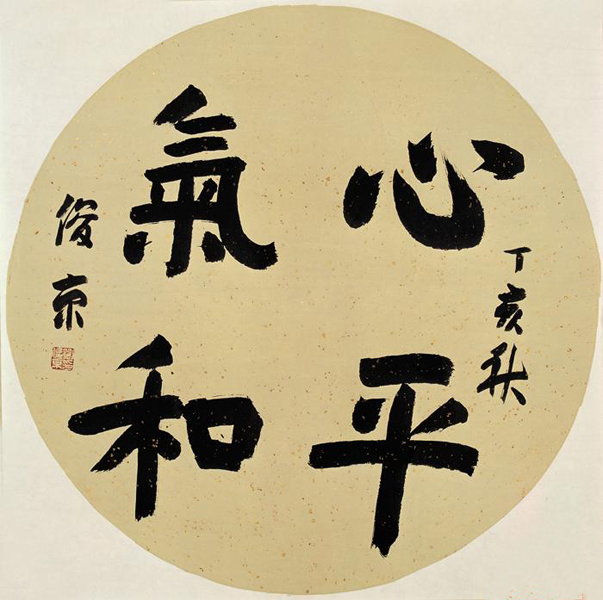 丁亥秋
心平
氣和
俊京